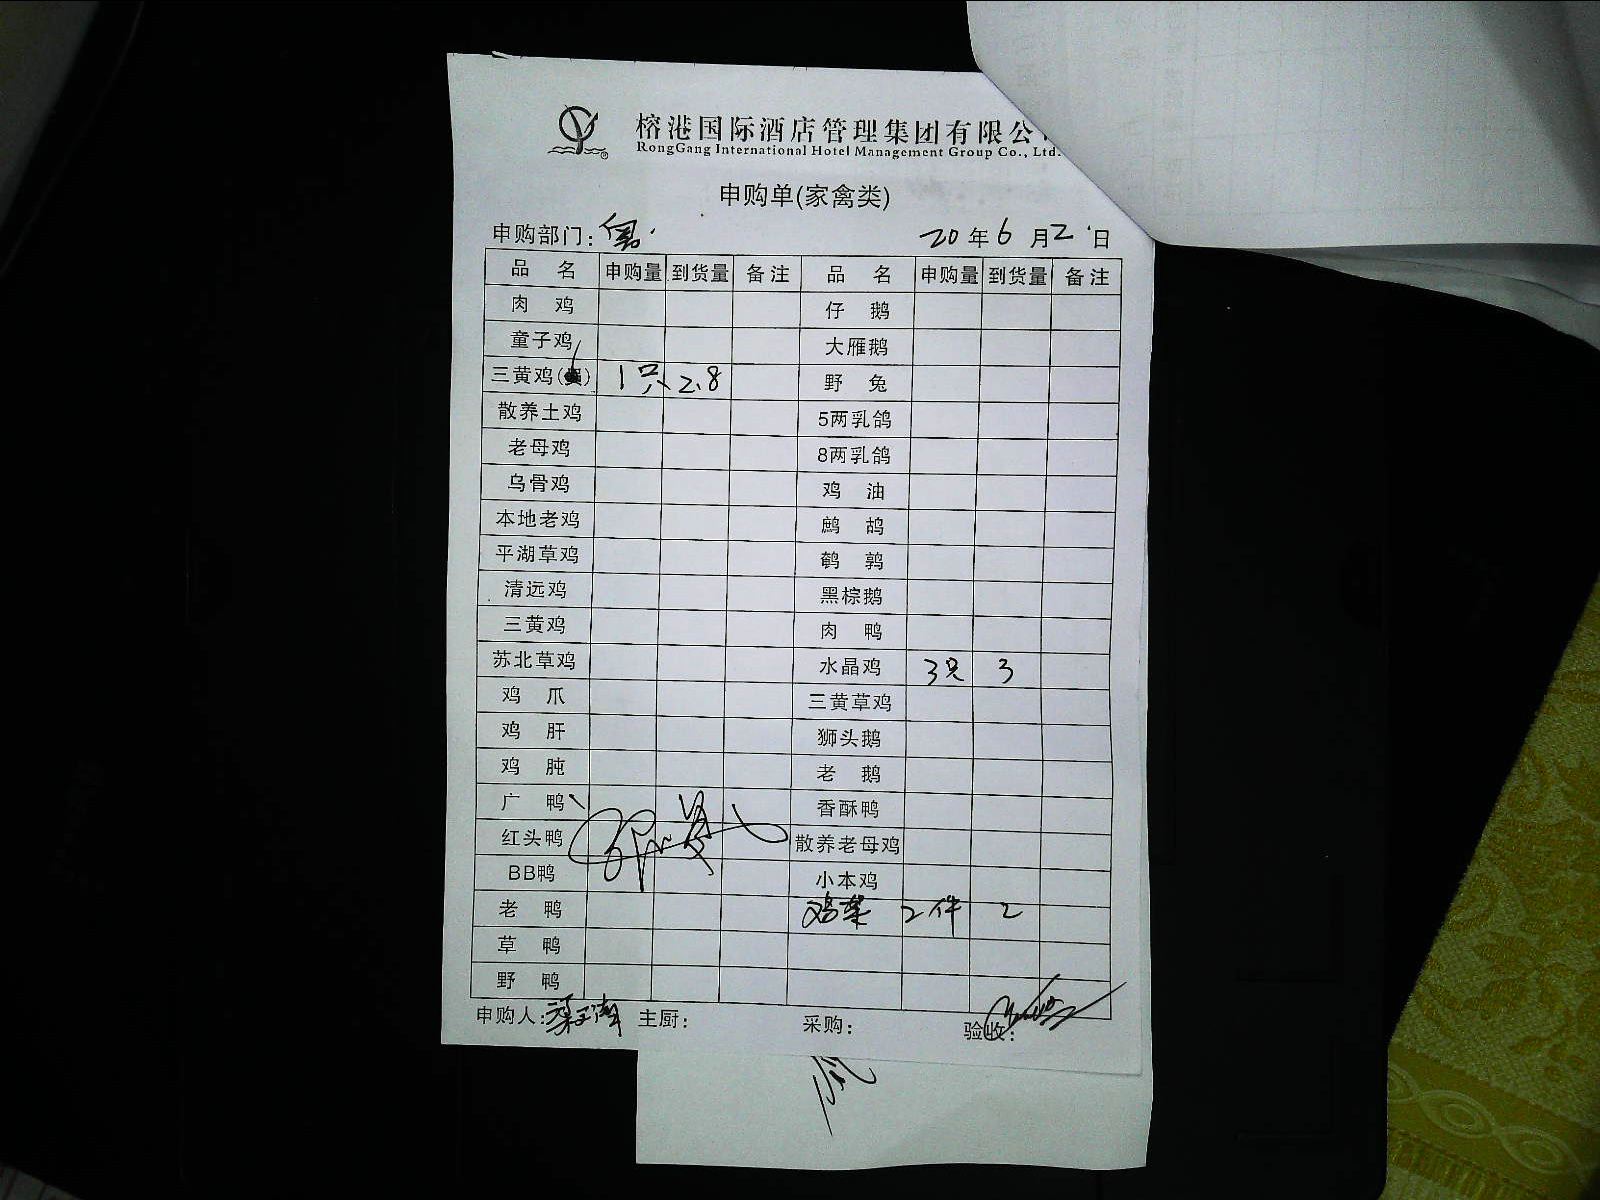 榕港国际酒店管理集团有限公
RongGang International Hotel Management Group Co., Ltd.
申购单(家禽类)
申购部门： 20年6月2日
品 名 申购量 到货量 备注 品 名 申购量 到货量 备注
肉 鸡 仔 鹅
童子鸡 大雁鹅
三黄鸡 1只 2.8 野 兔
散养土鸡 5两乳鸽
老母鸡 8两乳鸽
乌骨鸡 鸡 油
本地老鸡 鹧 鸪
平湖草鸡 鹌 鹑
清远鸡 黑棕鹅
三黄鸡 肉 鸭
苏北草鸡 水晶鸡 3只 3
鸡 爪 三黄草鸡
鸡 肝 狮头鹅
鸡 肫 老 鹅
广 鸭 香酥鸭
红头鸭 散养老母鸡
BB鸭 小本鸡
老 鸭 2件 2
草 鸭
野 鸭
申购人： 主厨： 采购： 验收：